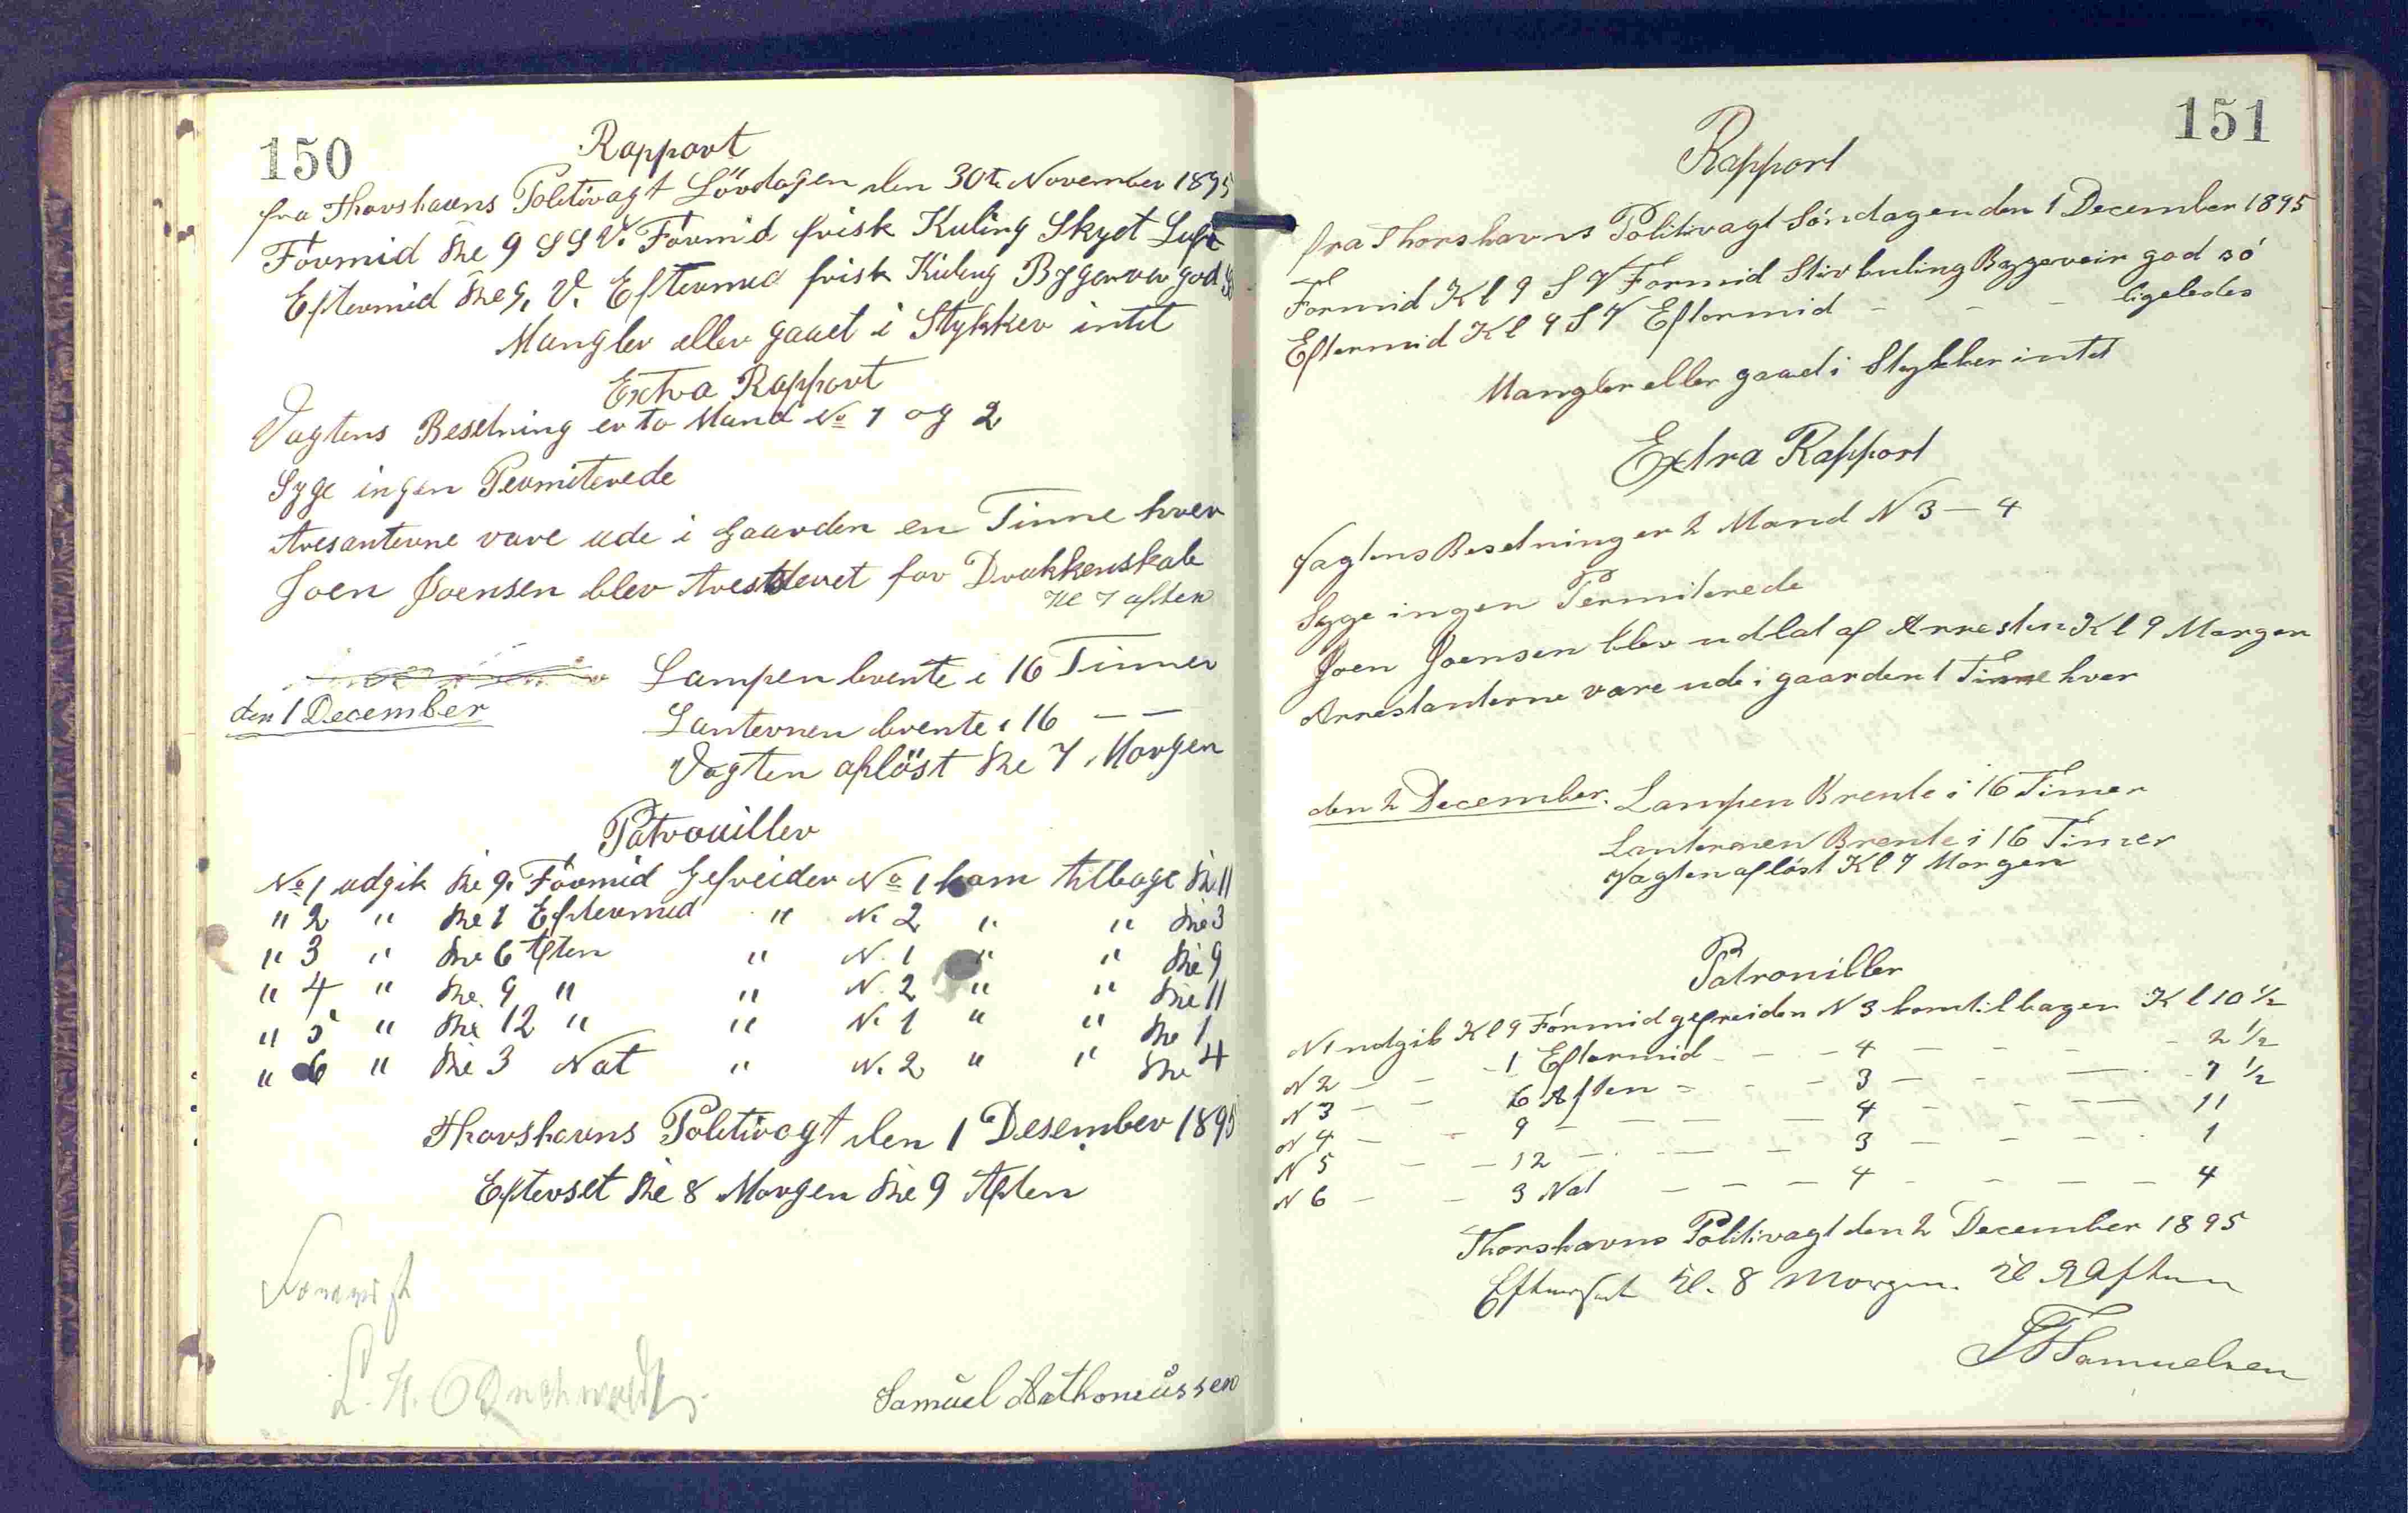 150
Rapport
fra Thorshavns Politivagt Löverdagen den 30te November 1895
Formid Kl 9 SSV. Formid frisk Kuling Skyet Luft
Eftermid Kl 9, V. Eftermid frisk Kuling Bygerveir god
Mangler eller gaaet i Stykker intet
Extra Rapport
Vagtens Besetning er to Mand No 1 og 2
Syge ingen Permiterede
Aresanterne vare ude i Gaarden en Timme hver
Joen Joensen blev Aresteret for Drukkenskab
Kl 7 aften
Lampen brente i 16 Timmer
den 1 December
Lanternen brente i 16 — —
Vagten aflöst Kl 7, Morgen
Patrouiller
No 1 udgik Kl 9, Formid Gefreider No 1 kom tilbage Kl 11
" 2 " Kl 1 Eftermid " N. 2 " " Kl 3
" 3 " Kl 6 Aften " N. 1 " " Kl 9
" 4 " Kl. 9 " " N. 2 " " Kl 11
" 5 " Kl 12 " " N. 1 " " Kl 1
" 6 " Kl 3 Nat " N. 2 " " Kl 4
Thorshavns Politivagt den 1 Desember 1895
Efterset Kl 8 Morgen Kl 9 Aften
L. H.
Samuel Mathoneussen
151
Rapport
fra Thorshavns Politivagt Söndagen den 1 December 1895
Formid Kl 9 S V Formid Stiv kuling Byggeveir god só
Eftermid Kl 9 S V Eftermid - - - ligeledes
Mangler eller gaaed i Stykker intet
Extra Rapport
Vagtens Besetning er 2 Mand N 3 — 4
Syge ingen Permiterede
Joen Joensen blev udlat af Arresten Kl 9 Morgen
Arrestanterne vare ude i gaarden 1 Timme hver
den 2 December. Lampen Brente i 16 Timer
Lanternen Brente i 16 Timer
Vagten aflóst Kl 7 Morgen
Patrouiller
N1 udgik Kl 9 Formid gefreiden N 3 kom tilbagen Kl 10 ½
N 2 — — - 1 Eftermid - — - 4 — - - - - 2 ½
N 3 — - 6 Aften - - - 3 — - - — - 7 ½
N 4 — - 9 — — — — 4 - - - — 11
N 5 — - 12 — - — - 3 — - - - 1
N 6 — - 3 Nat — — — 4 - - — — 4
Thorshavns Politivagt den 2 December 1895
Efterset Kl. 8 Morgen. Kl 9 Aften
Samuelsen